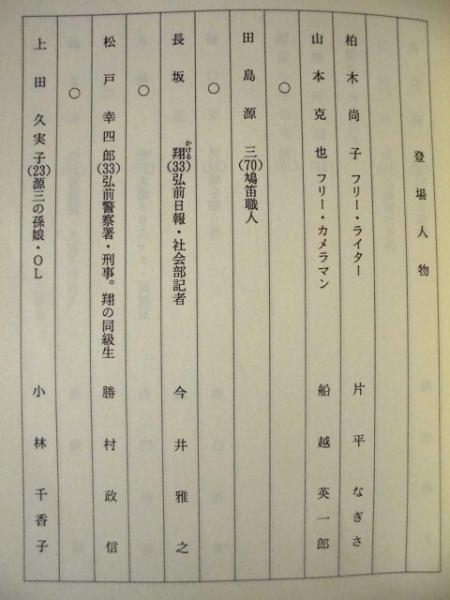 登場人物
柏木尚子 フリー・ライター 片平なぎさ
山本克也 フリー・カメラマン 船越英一郎
○
田島源三(70)鳩笛職人
○
長坂 翔(33)弘前日報・社会部記者 今井雅之
かける
○
松戸幸四郎(33)弘前警察署・刑事。翔の同級生 勝村政信
○
上田久実子(23)源三の孫娘・OL 小林千香子